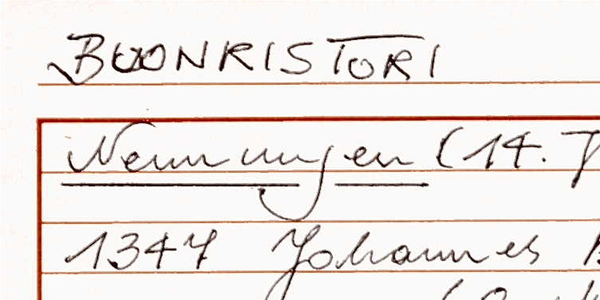 BUONRISTORI
Nennungen (14.
1347 Johannes